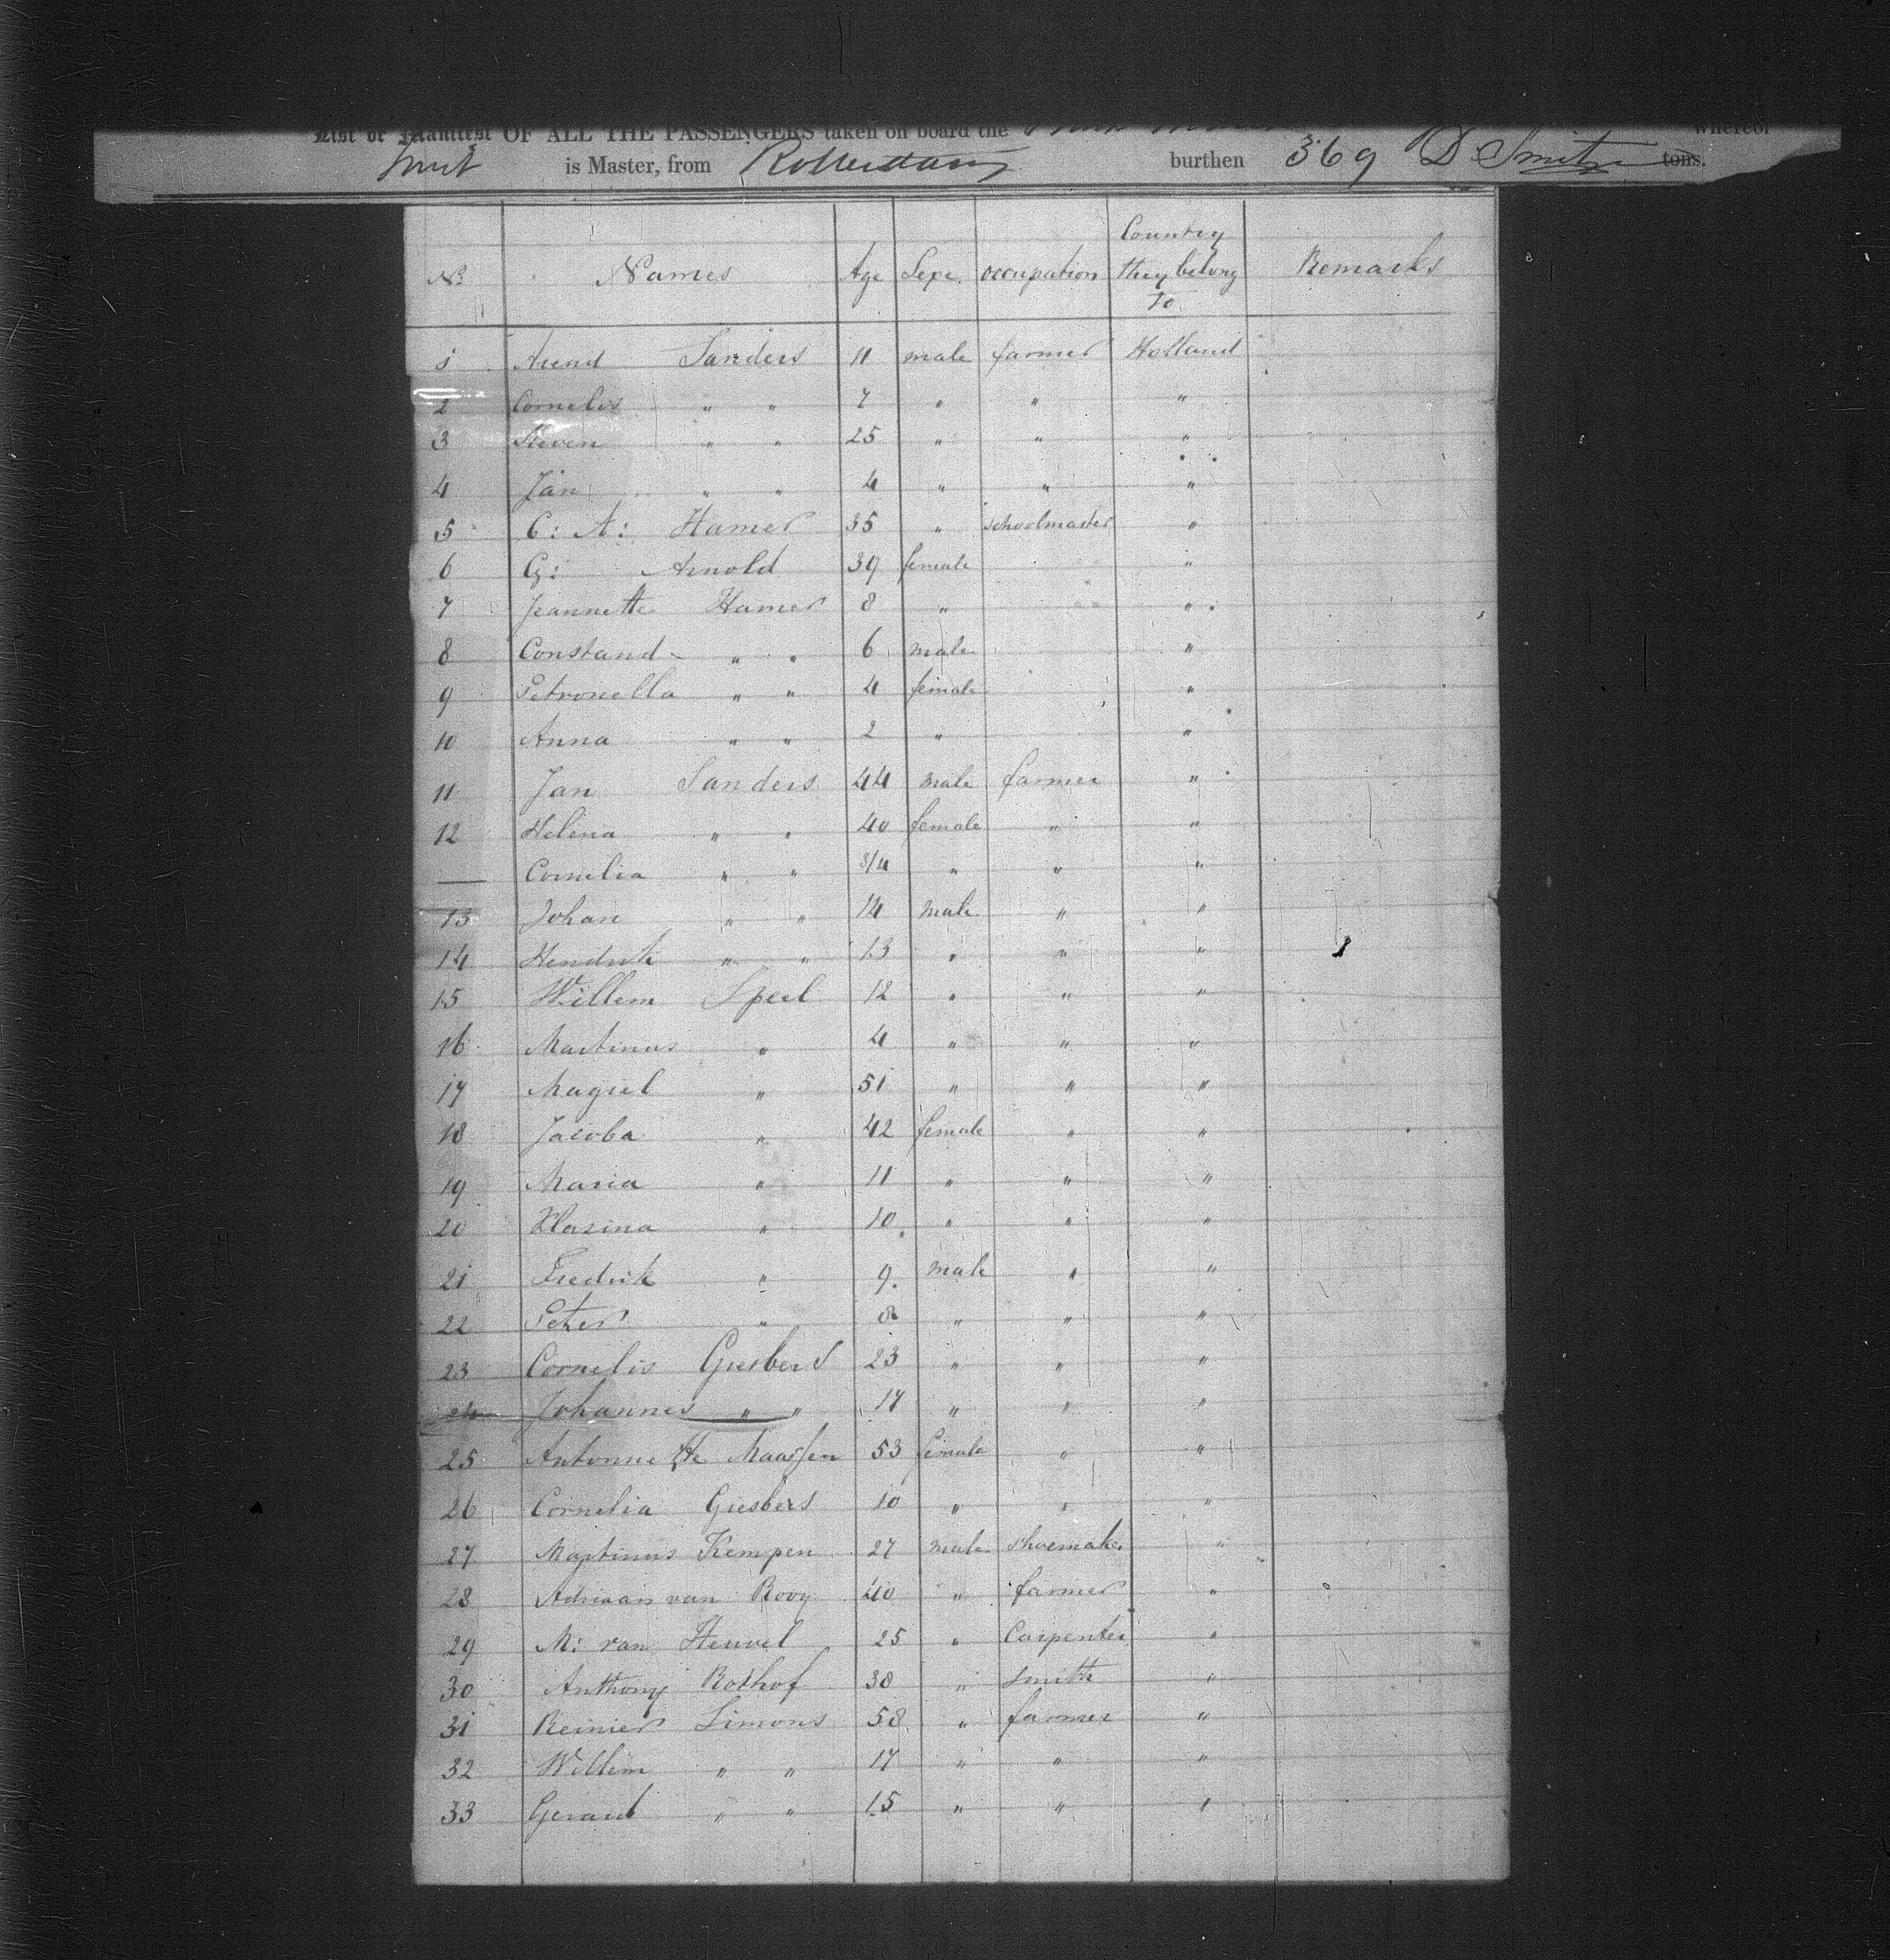 List or Manifest OF ALL THE PASSENGERS taken on board the whereof
is Master, from Rotterdam burthen 369 D Smit tons.
No Names Age Sexe occupation Country they belong to Remarks
1 Arend Sanders 11 male farmer Holland
2 Cornelis " " 7 " " "
3 Steven " " 25 " " "
4 Jan " " 4 " " "
5 C: A: Hamer 35 " schoolmaster "
6 G: Arnold 39 female "
7 Jeannette Hamer 8 " "
8 Constand " " 6 male "
9 Petronella " " 4 female "
10 Anna " " 2 " "
11 Jan Sanders 44 male farmer "
12 Helena " " 40 female " "
— Cornelia " " 3/4 " " "
13 Johan " " 14 male " "
14 Hendrik " " 13 " " "
15 Willem Speel 12 " " "
16 Martinus " 4 " " "
17 Magiel " 51 " " "
18 Jacoba " 42 female " "
19 Maria " 11 " " "
20 Klasina " 10 " " "
21 Fredrik " 9 male " "
22 Peter " 8 " " "
23 Cornelis Giesbers 23 " " "
24 Johannes " " 17 " " "
25 Antonnette Maassen 53 female " "
26 Cornelia Giesbers 10 " " "
27 Martinus Kempen 27 male shoemaker "
28 Adriaan van Rooy 40 " farmer "
29 M: van Heuvel 25 " Carpenter "
30 Anthony Rothof 38 " smith "
31 Reinier Simons 58 " farmer "
32 Willem " " 17 " " "
33 Gerard " " 15 " " "